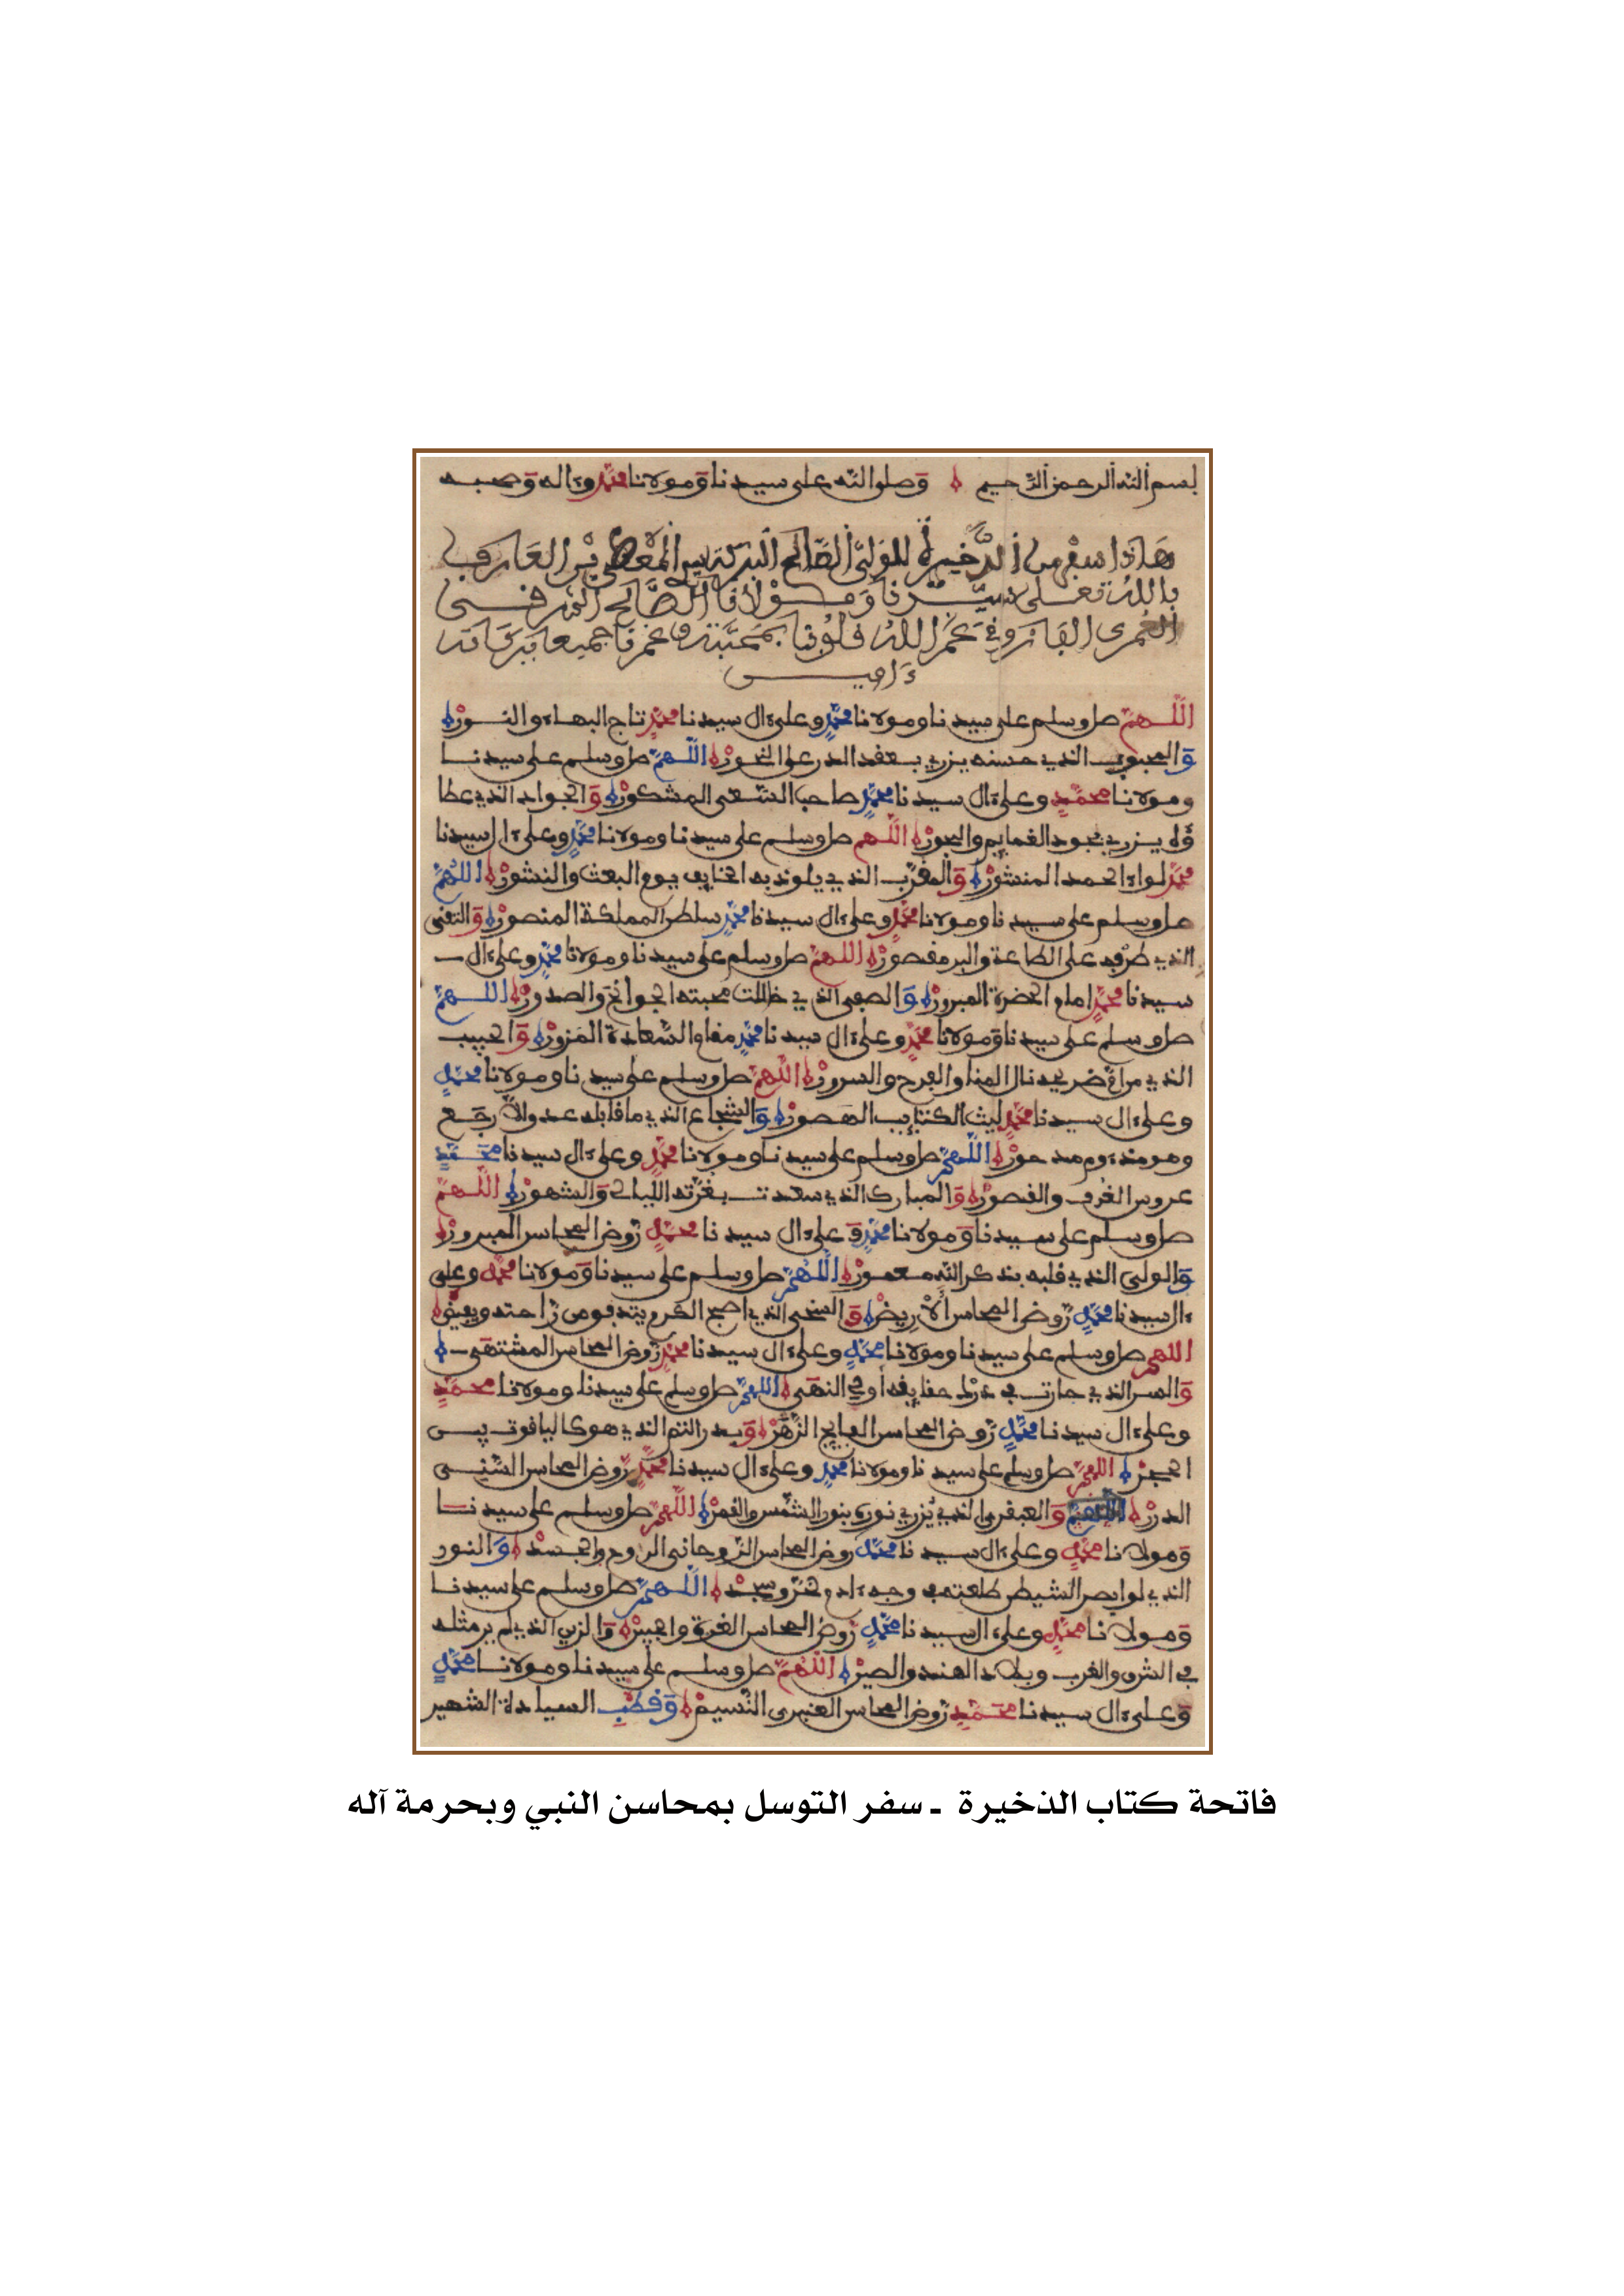 بسم الله الرحمن الرحيم وصلى الله على سيدنا ومولانا محمد وءاله وصحبه
هاذا سفر من الذخيرة للولي الصالح البركة سيدي المعطي بن العارف
بالله تعلى سيدنا ومولانا الصالح الشرقي
العمري الفاروقي عمر الله قلوبنا بمحبته وغمرنا جميعا ببركاته
ءامين
اللهم صل وسلم على سيدنا ومولانا محمد وعلى ءال سيدنا محمد تاج البهاء والنور
والمحبوب الذي حسنه يزري بعقد الدر على النحور اللهم صل وسلم على سيدنا
ومولانا محمد وعلى ءال سيدنا محمد صاحب السعي المشكور والجواد الذي عطا
ؤه يزري بجود الغمايم والبحور اللهم صل وسلم على سيدنا ومولانا محمد وعلى ءال سيدنا
محمد لواء الحمد المنشور والمقرب الذي يلوذ به الخايف يوم البعث والنشور اللهم
صل وسلم على سيدنا ومولانا محمد وعلى ءال سيدنا محمد سلطن المملكة المنصور والتقي
الذي طرفه على الطاعة والبر مقصور اللهم صل وسلم على سيدنا ومولانا محمد وعلى ءال
سيدنا محمد امام الحضرة المبرور والصفي الذي خاللت محبته الجوانح والصدور اللهم
صل وسلم على سيدنا ومولانا محمد وعلى ءال سيدنا محمد مقام السعادة المزور والحبيب
الذي من اغ ضريحه نال المنا والفرح والسرور اللهم صل وسلم على سيدنا ومولانا محمد
وعلى ءال سيدنا محمد ليث الكتايب الهصور والشجاع الذي ما قابله عدو الا رجع
وهو مذءوم مدحور اللهم صل وسلم على سيدنا ومولانا محمد وعلى ءال سيدنا محمد
عروس الغرف والقصور والمبارك الذي سعدت بغرته الليالي والشهور اللهم
صل وسلم على سيدنا ومولانا محمد وعلى ءال سيدنا محمد روض المحاسن المبرور
والولي الذي قلبه بذكر الله معمور اللهم صل وسلم على سيدنا ومولانا محمد وعلى
ءال سيدنا محمد روض المحاسن الاريض والسخي الذي اصبح الكرم يتدفق من راحته ويفيض
اللهم صل وسلم على سيدنا ومولانا محمد وعلى ءال سيدنا محمد روض المحاسن المشتهى
والسر الذي حارت في درك حقايقه أولي النهى اللهم صل وسلم على سيدنا ومولانا محمد
وعلى ءال سيدنا محمد روض المحاسن الفايح الزهر وبدر التم الذي هو كالياقوت بين
الحجر اللهم صل وسلم على سيدنا ومولانا محمد وعلى ءال سيدنا محمد روض المحاسن السني
الدرر والعبقري الذي يزري نوره بنور الشمس والقمر اللهم صل وسلم على سيدنا
ومولانا محمد وعلى ءال سيدنا محمد روض المحاسن الروحاني الروح والجسد والنور
الذي لو ابصر الشيطن طلعته في وجه ءادم خر وسجد اللهم صل وسلم على سيدنا
ومولانا محمد وعلى ءال سيدنا محمد روض المحاسن الغرة والجبين والزين الذي لم ير مثله
في الشرق والغرب وبلاد الهند والصين اللهم صل وسلم على سيدنا ومولانا محمد
وعلى ءال سيدنا محمد روض المحاسن العنبري النسيم وقطب السيادة الشهير
فاتحة كتاب الذخيرة ـ سفر التوسل بمحاسن النبي وبحرمة آله